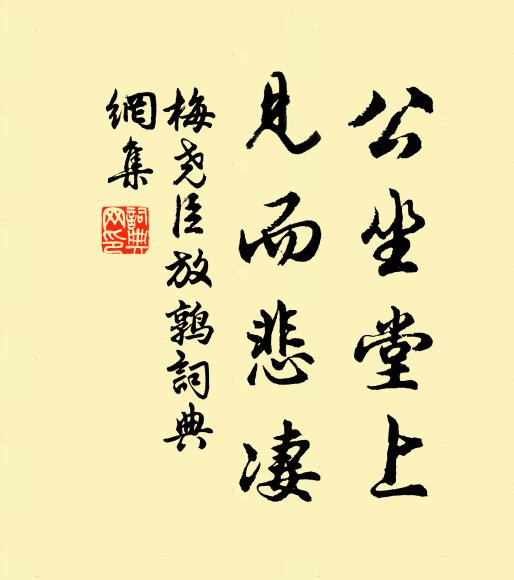 公坐堂上
見而悲凄
梅堯臣放鶉詞典
網集
詞典網印